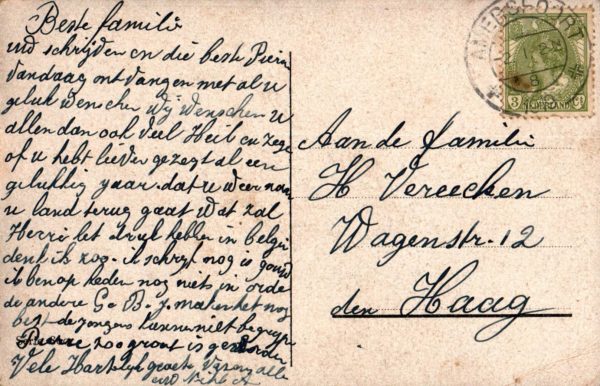 Beste familie
uw schrijven en die beste Pierre
vandaag ontvangen met al u
geluk wenschen Wij Wenschen u
allen dan ook veel Heil en zege
of u hebt liever gezegt al een
gelukkig yaar. dat u weer naar
u land terug gaat Wat zal
Herri het druk hebben in belgi
denk ik zoo. ik schryf nog is gouw
ik ben op heden nog niets in orde
de andere G. B. J. maken het nog
best de jongens kunnen niet begrype
Pierre zoo groot is geworden
Vele Hartelyk groete van ons alle
AMERSFOORT
3 NEDERLAND ct
Aan de familie
H Vereecken
Wagenstr. 12
den Haag